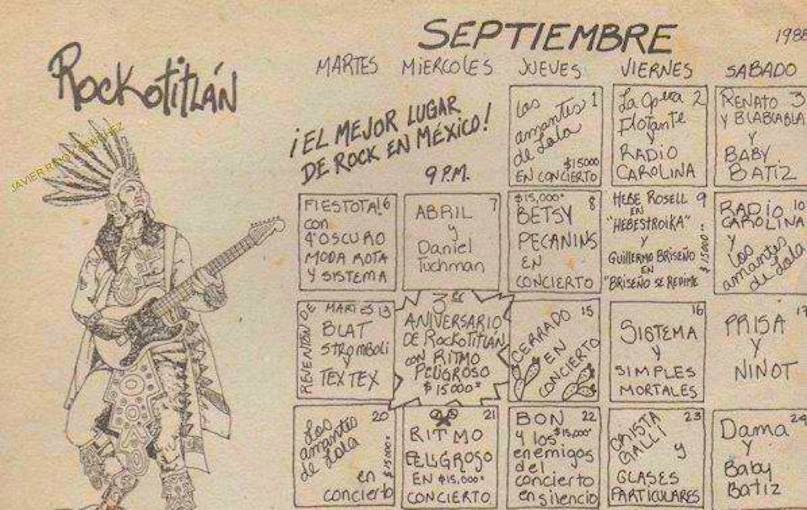 Rockotitlán
SEPTIEMBRE
MARTES MIERCOLES JUEVES VIERNES SABADO
¡EL MEJOR LUGAR
DE ROCK EN MÉXICO!
9 P.M.
Los 1
amantes
de Lola
$15000
EN CONCIERTO
La Opera 2
Flotante
y
RADIO
CAROLINA
RENATO 3
Y BLABLABLA
Y
BABY
BATIZ
FIESTOTA! 6
con
4º OSCURO
MODA ROTA
Y SISTEMA
7
ABRIL
y
Daniel
Tuchman
$15,000º 8
BETSY
PECANINS
EN
CONCIERTO
HEBE ROSELL 9
EN
"HEBESTROIKA"
Y
GUILLERMO BRISEÑO
EN
"BRISEÑO SE REDIME
$15000
RADIO 10
CAROLINA
Y
los
amantes
de Lola
REVENTÓN DE
MARTES 13
BLAT
STROMBOLI
y
TEX TEX
3er
ANIVERSARIO
DE ROCKOTITLÁN
CON RITMO
PELIGROSO
$15000º
15
CERRADO
EN
CONCIERTO
16
SISTEMA
y
SIMPLES
MORTALES
17
PRISA
Y
NINOT
20
Los
amantes
de Lola
en
concierto
$15000
21
RITMO
PELIGROSO
EN $15,000º
CONCIERTO
BON 22
y los $15,000º
enemigos
del
concierto
en silencio
23
CRISTA
GALLI y
CLASES
PARTICULARES
24
Dama
Y
Baby
Batiz